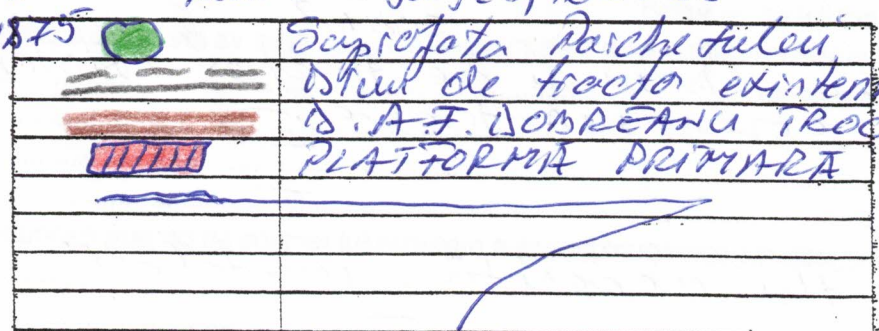 875 Suprafata Parchetului
Drum de tractor existent
D.A.F. DOBREANU TROC
PLATFORMA PRIMARA